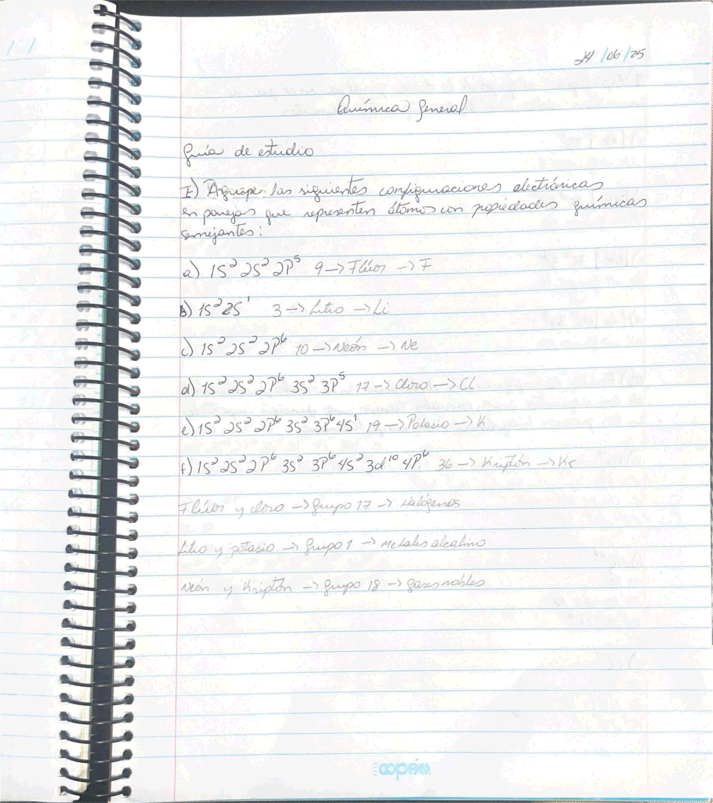 / /
24/06/25
Química General
Guía de estudio
I) Agrupe las siguientes configuraciones electrónicas
en parejas que representen átomos con propiedades químicas
semejantes:
a) 1S² 2S² 2P⁵ 9 → Flúor → F
b) 1S² 2S¹ 3 → Litio → Li
c) 1S² 2S² 2P⁶ 10 → Neón → Ne
d) 1S² 2S² 2P⁶ 3S² 3P⁵ 17 → Cloro → Cl
e) 1S² 2S² 2P⁶ 3S² 3P⁶ 4S¹ 19 → Potasio → K
f) 1S² 2S² 2P⁶ 3S² 3P⁶ 4S² 3d¹⁰ 4P⁶ 36 → Kriptón → Kr
Flúor y cloro → Grupo 17 → Halógenos
Litio y potasio → Grupo 1 → Metales alcalino
Neón y Kriptón → Grupo 18 → gases nobles